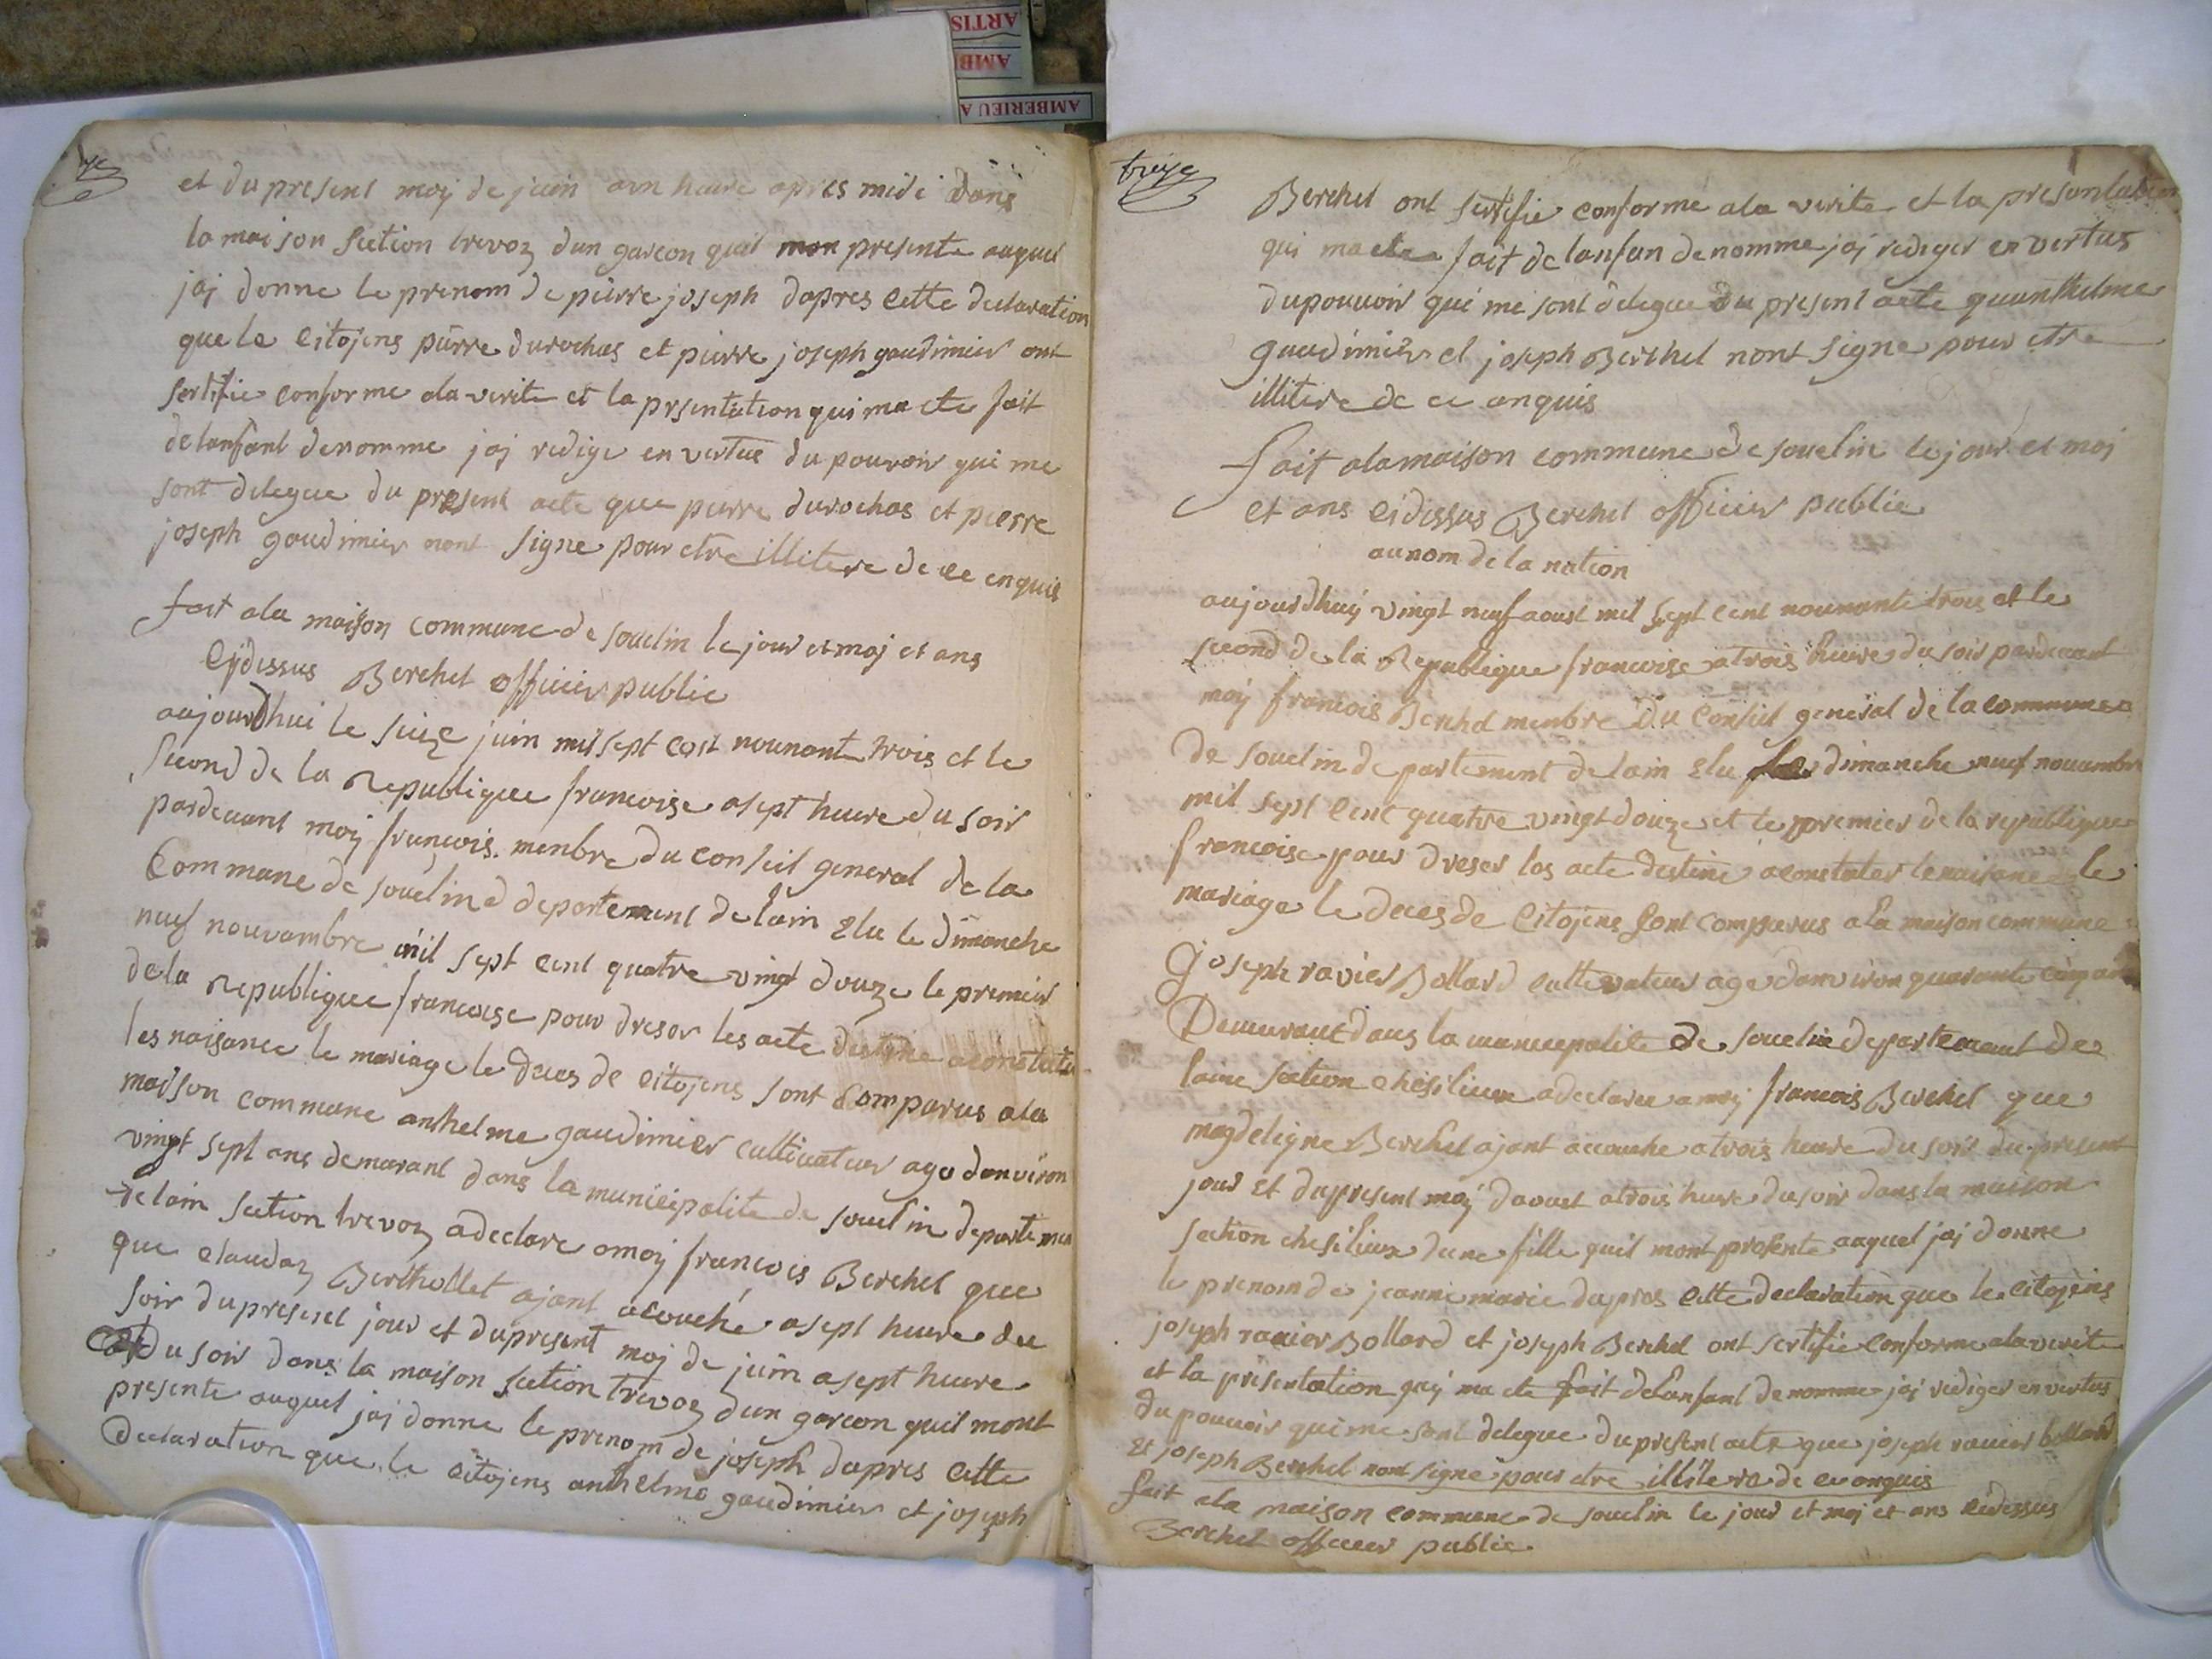 et du present moij de juin a un heure apres midi dans
la maison section trevoz dun garcon quil mon presente auquel
jaj donne le prenom de pierre joseph dapres cette declaration
que le citojens pierre durochas et pierre joseph gaudimier ont
sertifie conforme ala verite et la prsentation qui ma ete fait
de lanfant denomme jaj redige en vertue du pouvoir qui me
sont delegue du present acte que pierre durochas et pierre
joseph gaudimier nont signe pour etre illitere de ce enquis
fait ala maison commune de souclin le jour et moj et ans
cydissus Berchet officier public
aujourdhui le seize juin mil sept cent nounante trois et le
second de la republique francoise a sept heure du soir
pardevant moij francois menbre du conseil general de la
Commune de souclin departement de lain elu le dimanche
neuf nouvambre mil sept cent quatre vingt douze le premier
de la republique francoise pour dreser les acte destine a constate
les naisance le mariage le deces de citojens sont comparus ala
maison commune anthelme gaudimier cultivateur age danviron
vingt sept ans demurant dans la municipalite de souclin departemen
de lain section trevoz a declare a moij francois Berchet que
que claudaz Berthollet ajant acouche a sept heure du
soir du present jour et du present moj de juin a sept heure
du soir dans la maison section trevoz dun garcon quil mont
presente auquel jaj donne le prenom de joseph dapres cette
declaration que le citojens anthelme gaudimier et joseph
treize
Berchet ont sertifie conforme ala verite et la presantation
qui ma ete fait de lanfan denomme jaj rediger en vertus
du pouvoir qui me sont delegue du present acte quanthelme
gaudimier et joseph Berchet nont signe pour etre
illitere de ce anquis
fait ala maison commune de souclin le jour et moj
et ans cidissus Berchet officier public
au nom de la nation
aujourdhuij vingt neuf aoust mil sept cent nounante trois et le
second de la Republique francoise a trois heure du soir pardevant
moij francois Berchet menbre du conseil general de la commune
de souclin departement de lain elu dimanche neuf nouvambre
mil sept cent quatre vingt douze et le premier de la republique
francoise pour dreser les acte destine a constater le naisance le
mariage le deces de citojens sont comparus ala maison commune
joseph ravier Bollard cultevateur age danviron quarante cinq an
Demurant dans la municepalite de souclin departement de
laine section chesilieux a declaree a moj francois Berchet que
magdeligne Berchet ajant acouche a trois heure du soir du present
jour et du present moij daoust a trois heure du soir dans la maison
section chesilieux dune fille quil mont presente auquel jaj donne
le prenom de jeanne marie dapres cette declaration que le citojens
joseph ravier Bollard et joseph Berchet ont sertifie conforme ala verite
et la presentation quj ma ete fait de lanfant denomme jaj rediger en vertus
du pouvoir qui me sont delegue du present acte que joseph ravier bollard
et joseph Berchet nont signe pour etre illitere de ce anquis
fait ala maison commune de souclin le jour et moj et ans cidessus
Berchet officier public
ARTIS
AMB
AMBERIEU A